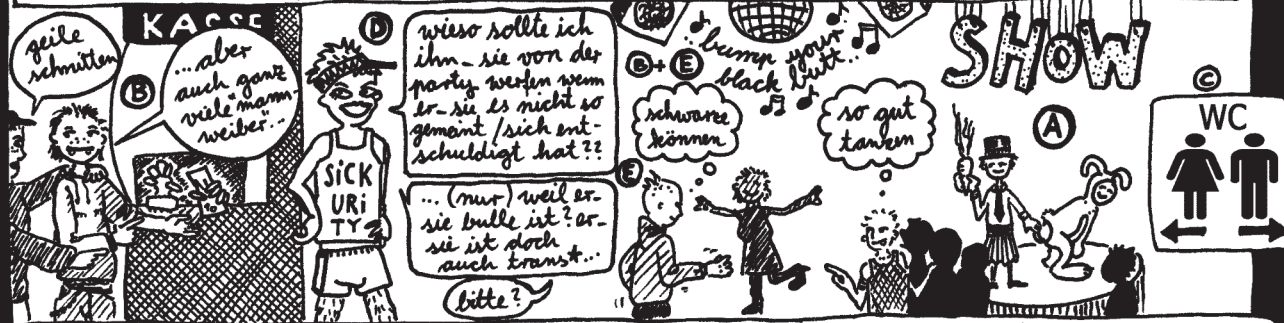 geile
schnitten
KASSE
B
...aber
auch ganz
viele "mann-
weiber"...
D
SiCK
URi
TY
wieso sollte ich
ihn_sie von der
party werfen wenn
er_sie es nicht so
gemeint/sich ent-
schuldigt hat??
... (nur) weil er-
sie bulle ist? er-
sie ist doch
auch trans*...
bitte?
bump your
black butt..
B + E
schwarze
können
E
so gut
tanzen
SHOW
A
C
WC